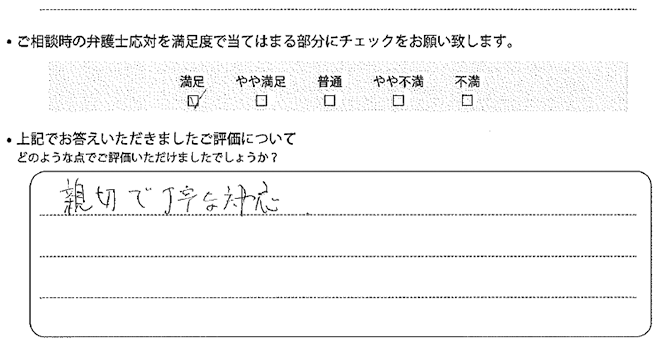 ・ご相談時の弁護士応対を満足度で当てはまる部分にチェックをお願い致します。
満足 やや満足 普通 やや不満 不満
☑ □ □ □ □
・上記でお答えいただきましたご評価について
どのような点でご評価いただけましたでしょうか？
親切で丁寧な対応